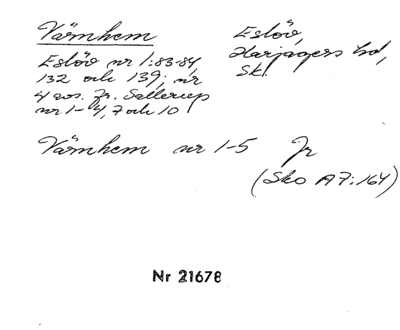 Värnhem
Eslöv,
Harjagers hd,
Skl.
Eslöv nr 1:83-84,
132 och 139; nr
4 avs. fr. Sallerup
nr 1-4, 7 och 10
Värnhem nr 1-5 Jr
(Sko A7:164)
Nr 21678